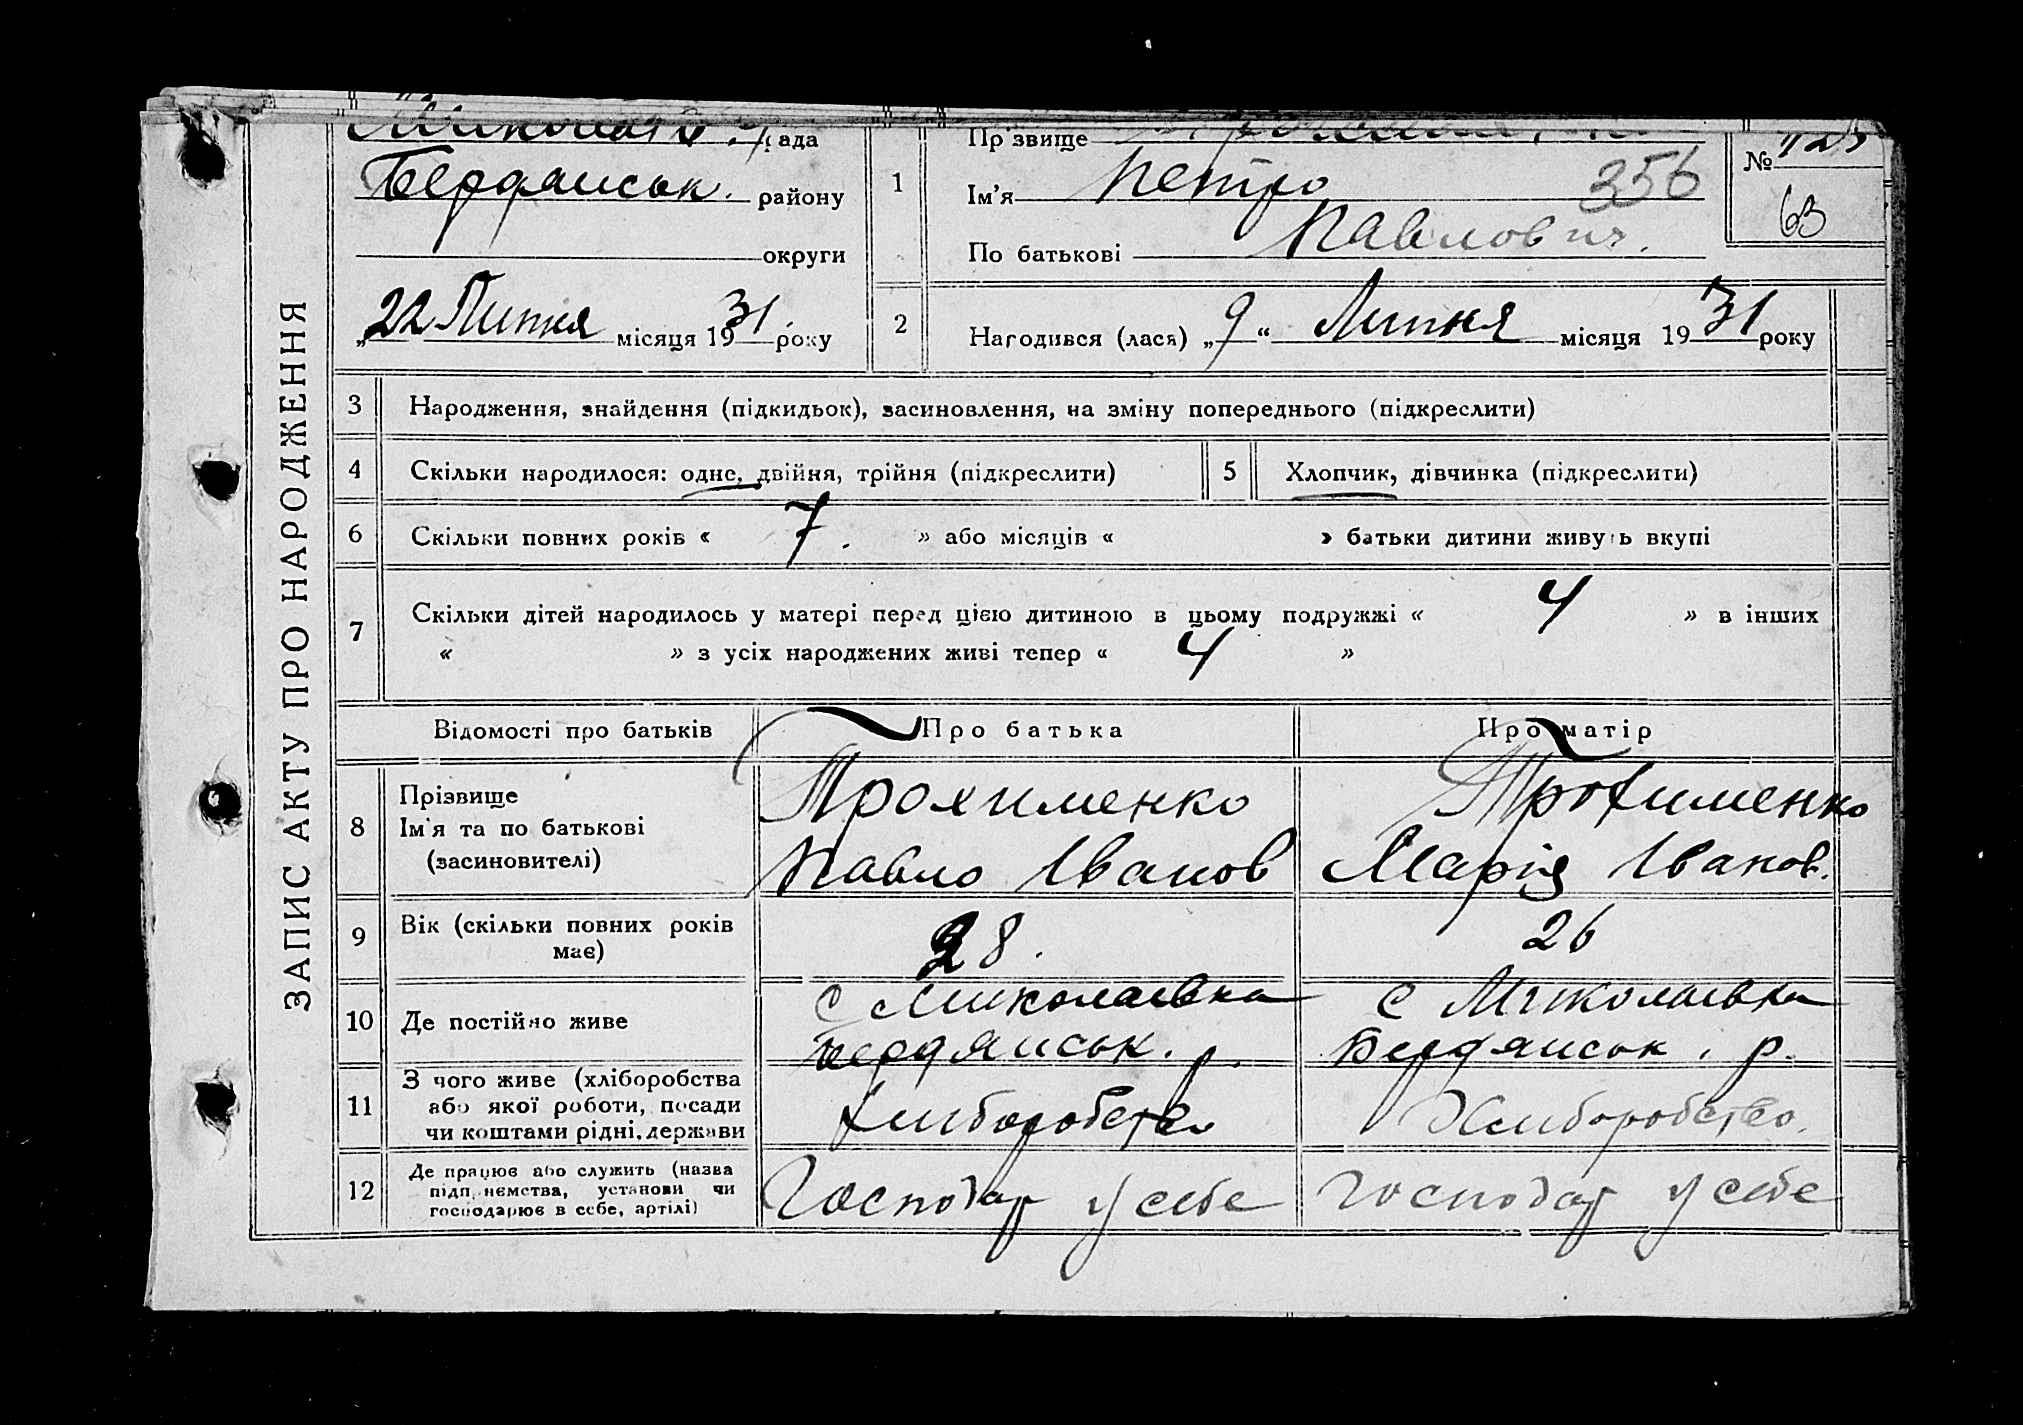 ЗАПИС АКТУ ПРО НАРОДЖЕННЯ
рада
Бердянськ. району
округи
22 Липня місяця 1931 року
1
Прізвище
Ім'я Петро 356
По батькові Павлович.
№
63
2
Народився (лася) „9“ Липня місяця 1931 року
3 Народження, знайдення (підкидьок), засиновлення, на зміну попереднього (підкреслити)
4 Скільки народилося: одне, двійня, трійня (підкреслити)
5 Хлопчик, дівчинка (підкреслити)
6 Скільки повних років « 7. » або місяців « » батьки дитини живуть вкупі
7 Скільки дітей народилось у матері перед цією дитиною в цьому подружжі « 4 » в інших
« » з усіх народжених живі тепер « 4 »
Відомості про батьків
Про батька
Про матір
8 Прізвище
Ім'я та по батькові
(засиновителі)
Трохименко
Павло Іванов
Трохименко
Марія Іванов.
9 Вік (скільки повних років
має)
28.
26
10 Де постійно живе
с Миколаевка
Бердянськ. р.
с Миколаевка
Бердянськ. р.
11 З чого живе (хліборобства
або якої роботи, посади
чи коштами рідні, держави
Хлиборобство
Хлиборобство.
12 Де працює або служить (назва
підприємства, установи чи
господарює в себе, артілі)
Господар у себе
Господар у себе